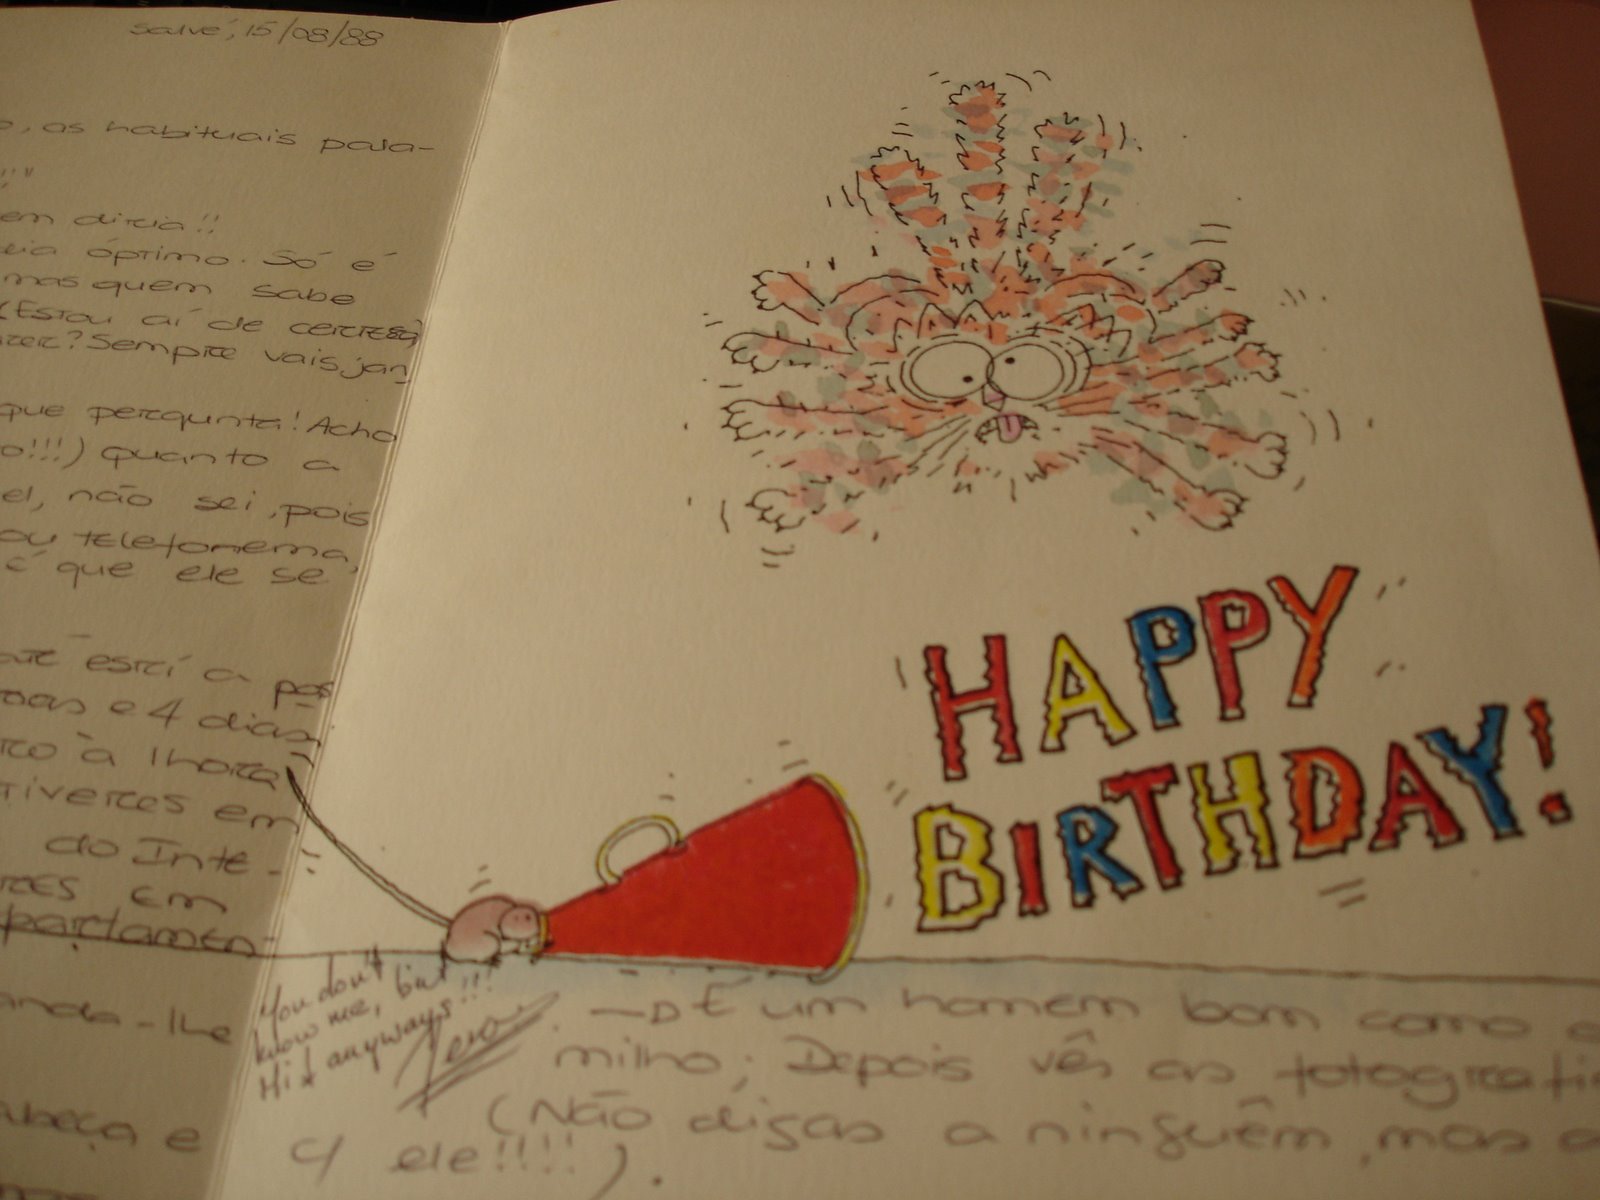 Salvé, 15/08/88
, as habituais pala-
!!"
em diria!!
óptimo. Só é
mas quem sabe
(Estou aí de certeza)
? Sempre vais jan
que pergunta! Acho
o!!!) quanto a
el, não sei, pois
ou telefonema,
é que ele se
até está a pas
e 4 dias
à lhota
tiveres em
do Inte-
em
partamen-
anda-lhe
abeça e
HAPPY
BIRTHDAY!
You don't
know me, but
Hi anyways!!!
—D É um homem bom como o
milho; Depois vês as fotografi
(Não digas a ninguêm, mas
c/ ele!!!!).